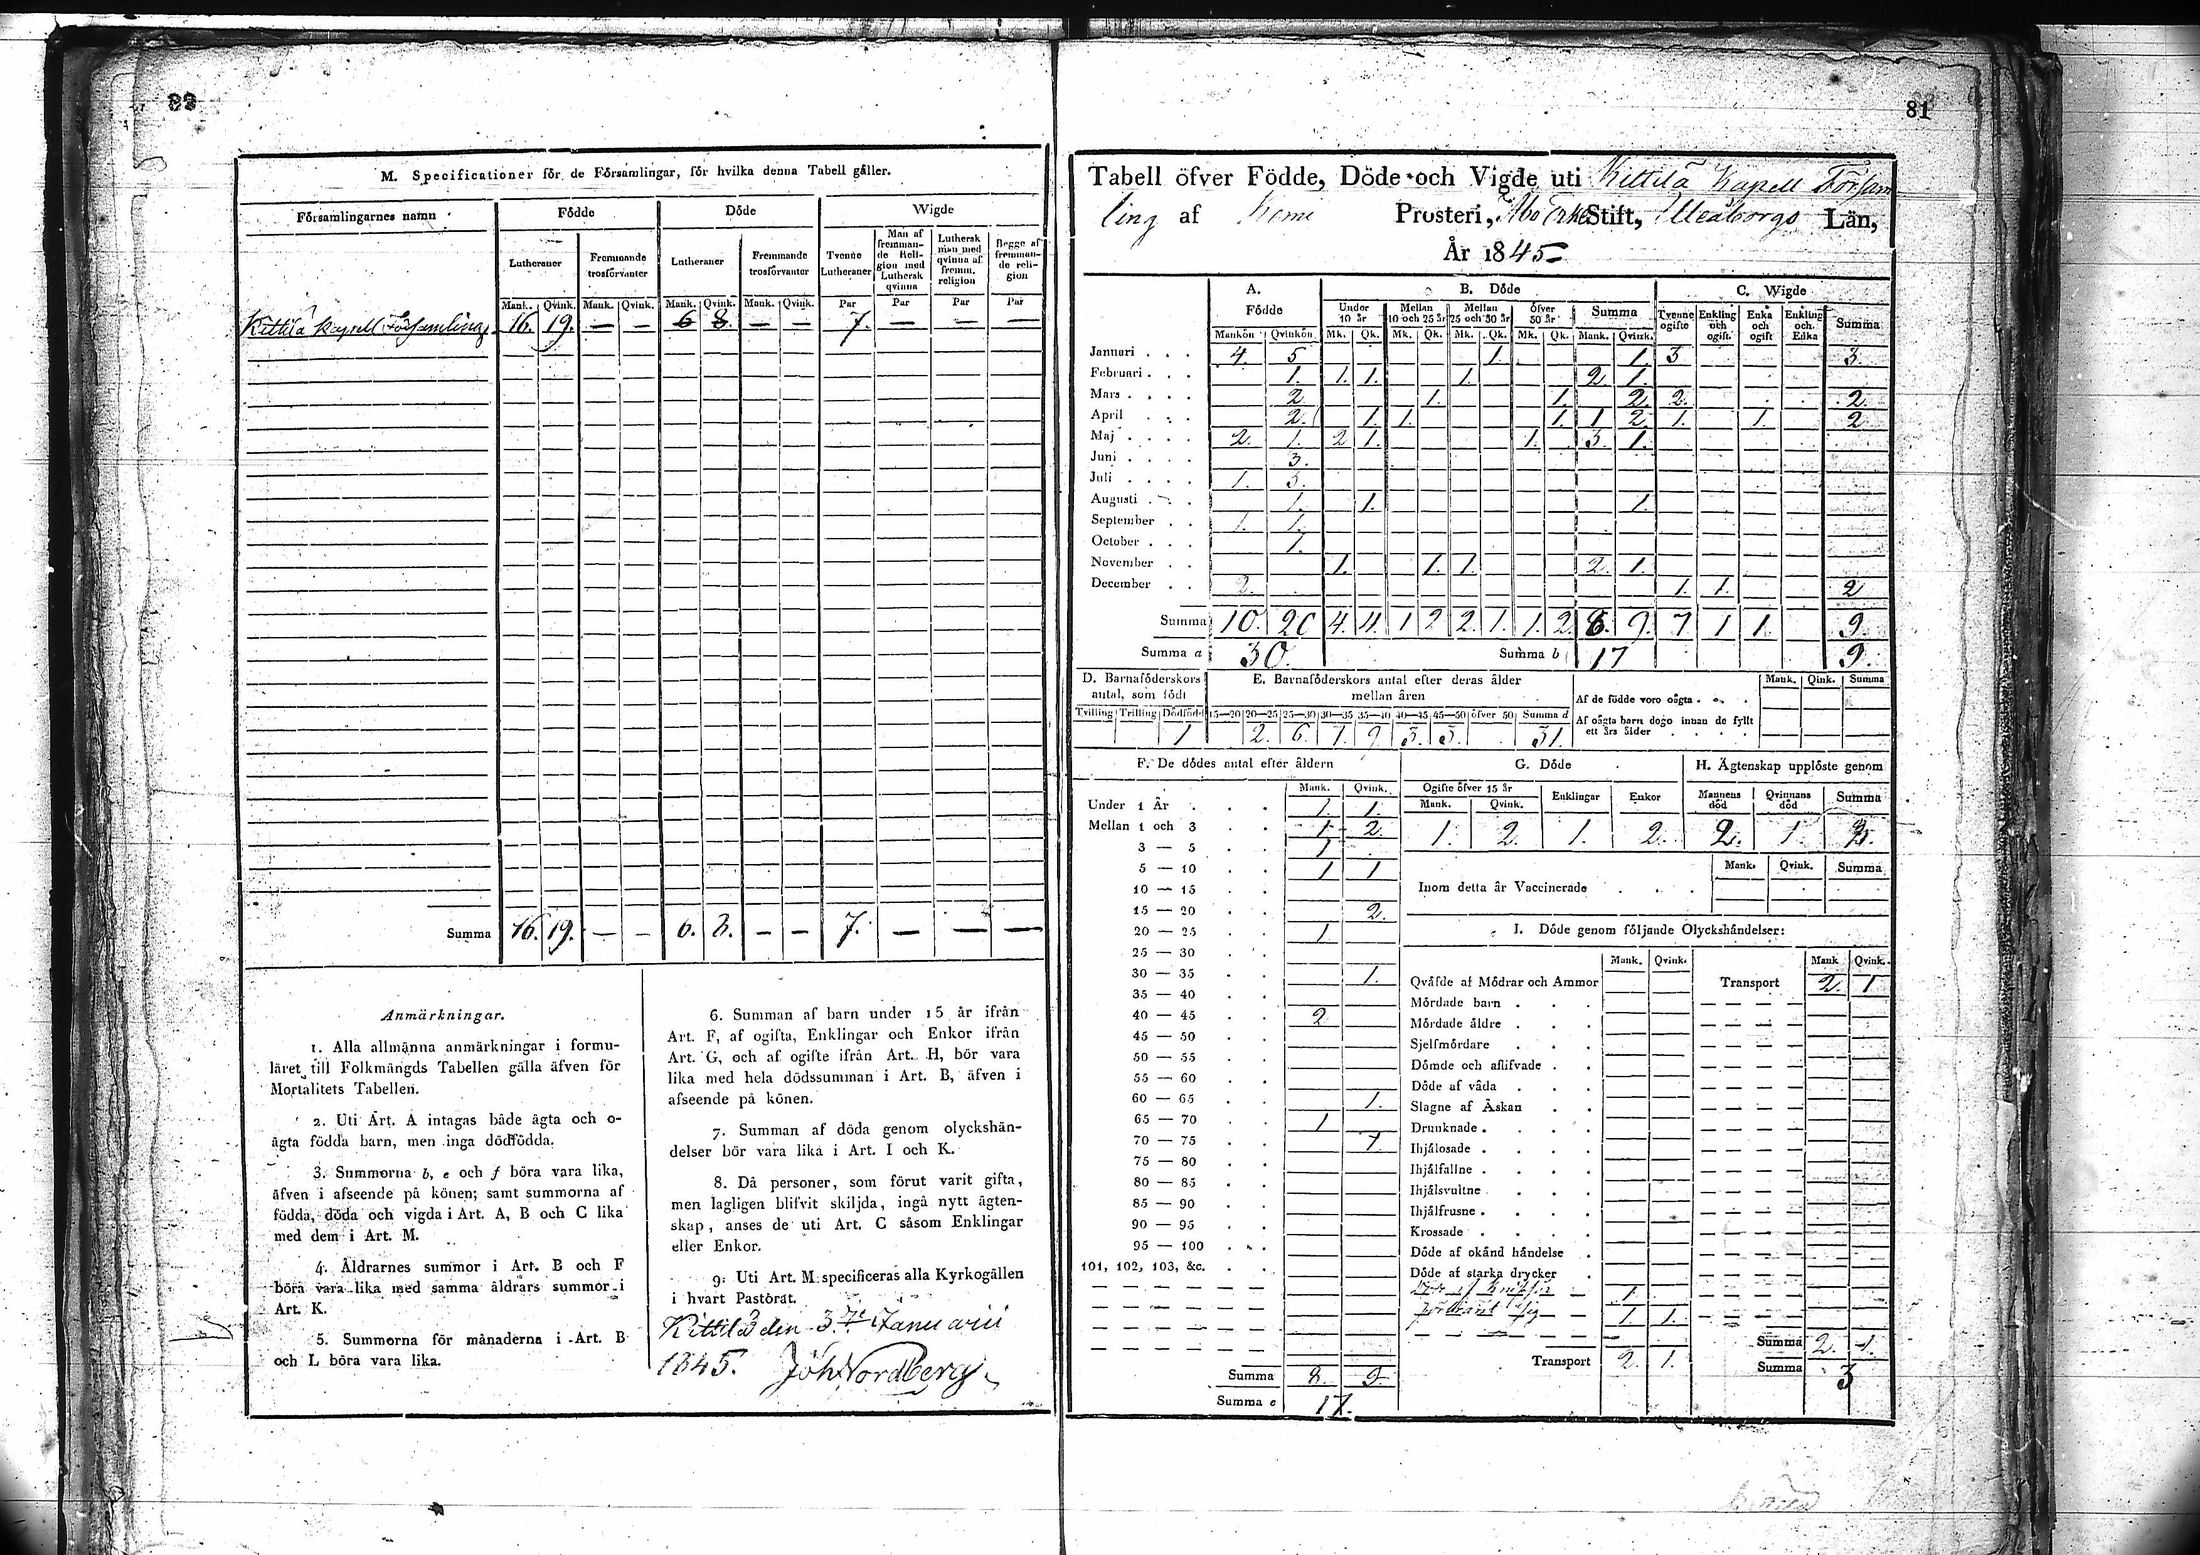 82
M. Specificationer för de Församlingar, för hvilka denna Tabell gäller.
Församlingarnes namn
Födde
Döde
Wigde
Lutheraner
Fremmande trosförvanter
Lutheraner
Fremmande trosförvanter
Tvenne Lutheraner
Man af fremmande Religion med Luthersk qvinna
Luthersk man med qvinna af fremm. religion
Begge af fremmande religion
Mank. Qvink. Mank. Qvink. Mank. Qvink. Mank. Qvink. Par Par Par Par
Kittilä Kapell Församling 16. 19. — — 6 8. — — 7. — — —
Summa 16. 19. — — 6. 8. — — 7. — — —
Anmärkningar.
1. Alla allmänna anmärkningar i formu-
läret till Folkmängds Tabellen gälla äfven för
Mortalitets Tabellen.
2. Uti Art. A intagas både ägta och o-
ägta födda barn, men inga dödfödda.
3. Summorna b, e och f böra vara lika,
äfven i afseende på könen; samt summorna af
födda, döda och vigda i Art. A, B och C lika
med dem i Art. M.
4. Åldrarnes summor i Art. B och F
böra vara lika med samma åldrars summor i
Art. K.
5. Summorna för månaderna i Art. B
och L böra vara lika.
6. Summan af barn under 15 år ifrån
Art. F, af ogifta, Enklingar och Enkor ifrån
Art. G, och af ogifte ifrån Art. H, bör vara
lika med hela dödssumman i Art. B, äfven i
afseende på könen.
7. Summan af döda genom olyckshän-
delser bör vara lika i Art. I och K.
8. Då personer, som förut varit gifta,
men lagligen blifvit skiljda, ingå nytt ägten-
skap, anses de uti Art. C såsom Enklingar
eller Enkor.
9. Uti Art. M specificeras alla Kyrkogällen
i hvart Pastorat.
Kittilä den 3. Januarii
1845. Joh Nordberg
81
Tabell öfver Födde, Döde och Vigde uti Kittilä Kapell Församling af Kemi Prosteri, Åbo Erke Stift, Uleåborgs Län,
År 1845
A. Födde
B. Döde
C. Wigde
Under 10 år
Mellan 10 och 25 år
Mellan 25 och 50 år
Öfver 50 år
Summa
Tvenne ogifte
Enkling och ogift
Enka och ogift
Enkling och Enka
Summa
Mankön Qvinkön Mk. Qk. Mk. Qk. Mk. Qk. Mk. Qk. Mank. Qvink.
Januari . . . 4. 5 1. 1. 3 3.
Februari . . . 1. 1. 1. 1. 2 1.
Mars . . . . 2 1. 1. 2. 2. 2.
April . . 2. 1. 1. 1. 1 2 1. 1. 2
Maj . . . . 2. 1. 2 1. 1. 3. 1.
Juni . . . . 3.
Juli . . . . 1. 3.
Augusti . . . 1. 1. 1.
September . . 1. 1.
October . . . 1.
November . . 1. 1. 1. 2. 1.
December . . 2. 1. 1. 2
Summa 10. 20 4. 4. 1 2 2. 1. 1. 2. 8. 9. 7 1 1. 9.
Summa a 30. Summa b 17 9.
D. Barnaföderskors antal, som födt
E. Barnaföderskors antal efter deras ålder mellan åren
Tvilling Trilling Dödfödd 15—20 20—25 25—30 30—35 35—40 40—45 45—50 öfver 50 Summa d
1 2. 6. 7. 9. 3. 3. 31.
Mank. Qink. Summa
Af de födde voro oägta . . .
Af oägta barn dogo innan de fyllt
ett års ålder . . . .
F. De dödes antal efter åldern
Mank. Qvink.
Under 1 År . . . 1. 1.
Mellan 1 och 3 . . 1 2.
3 — 5 . . 1
5 — 10 . . 1 1
10 — 15 . .
15 — 20 . . 2.
20 — 25 . . 1
25 — 30 . .
30 — 35 . . 1.
35 — 40 . .
40 — 45 . . 2
45 — 50 . .
50 — 55 . .
55 — 60 . .
60 — 65 . . 1.
65 — 70 . . 1
70 — 75 . . 1
75 — 80 . .
80 — 85 . .
85 — 90 . .
90 — 95 . .
95 — 100 . .
101, 102, 103, &c. . .
Summa 8. 9.
Summa e 17.
G. Döde
Ogifte öfver 15 år
Mank. Qvink. Enklingar Enkor
1. 2. 1. 2.
H. Ägtenskap upplöste genom
Mannens död Qvinnans död Summa
2. 1. 3.
Mank. Qvink. Summa
Inom detta år Vaccinerade . . .
I. Döde genom följande Olyckshändelser:
Mank. Qvink. Mank Qvink.
Qväfde af Mödrar och Ammor Transport 2. 1
Mördade barn . . .
Mördade äldre . . .
Sjelfmördare . . .
Dömde och aflifvade . .
Döde af våda . . .
Slagne af Åskan . .
Drunknade . . . .
Ihjälosade . . . .
Ihjälfallne . . . .
Ihjälsvultne . . .
Ihjälfrusne . . . .
Krossade . . . .
Döde af okänd händelse .
Döde af starka drycker .
1
1 1.
Summa 2. 1.
Transport 2. 1. Summa 3